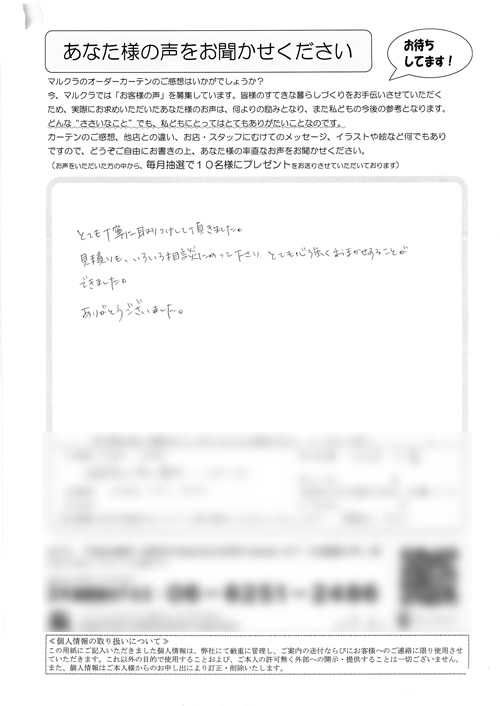 あなた様の声をお聞かせください
お待ち
してます！
マルクラのオーダーカーテンのご感想はいかがでしょうか？
今、マルクラでは「お客様の声」を募集しています。皆様のすてきな暮らしづくりをお手伝いさせていただく
ため、実際にお求めいただいたあなた様のお声は、何よりの励みとなり、また私どもの今後の参考となります。
どんな“ささいなこと”でも、私どもにとってはとてもありがたいことなのです。
カーテンのご感想、他店との違い、お店・スタッフにむけてのメッセージ、イラストや絵など何でもあり
ですので、どうぞご自由にお書きの上、あなた様の率直なお声をお聞かせください。
（お声をいただいた方の中から、毎月抽選で１０名様にプレゼントをお送りさせていただいております）
とても丁寧に取りつけして頂きました。
見積りも、いろいろ相談にのって下さり とても心強くおまかせすることが
できました。
ありがとうございました。
06-6251-2486
≪個人情報の取り扱いについて≫
この用紙にご記入いただきました個人情報は、弊社にて厳重に管理し、ご案内の送付ならびにお客様へのご連絡に限り使用させ
ていただきます。これ以外の目的で使用することおよび、ご本人の許可無く外部への開示・提供することは一切ございません。
また、個人情報はご本人様からのお申し出により訂正・削除いたします。